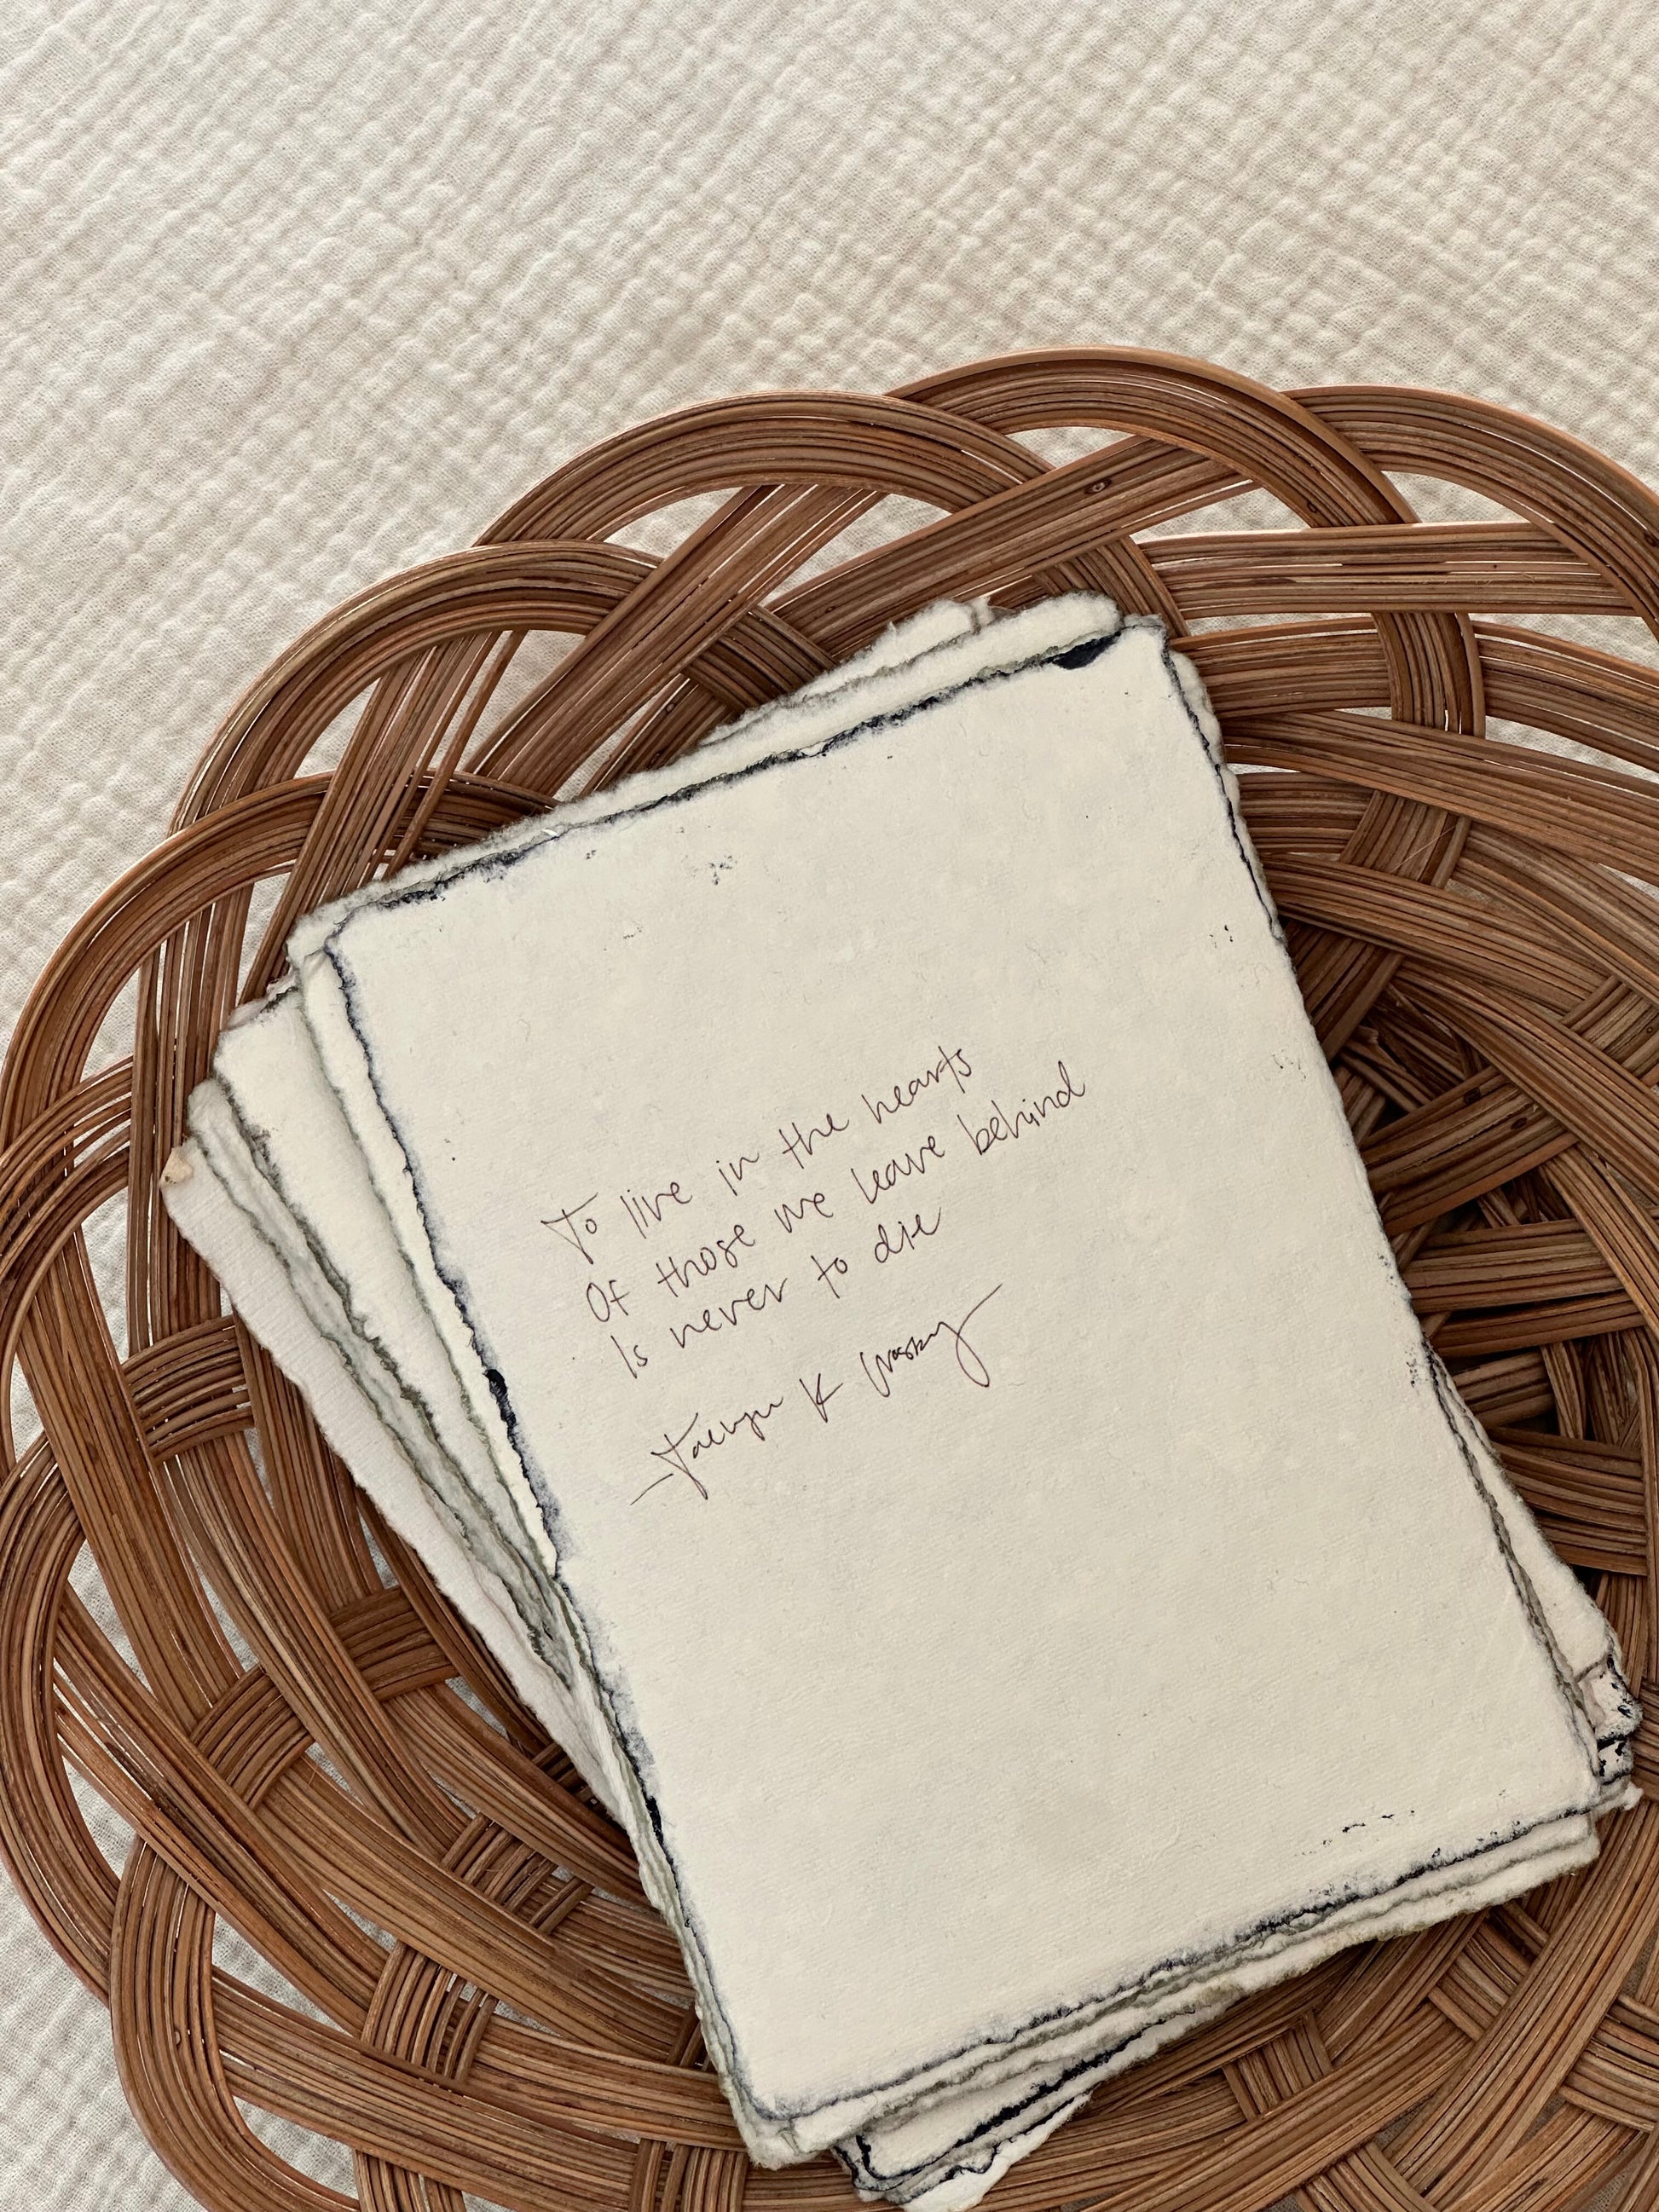 To live in the hearts
Of those we leave behind
Is never to die
K